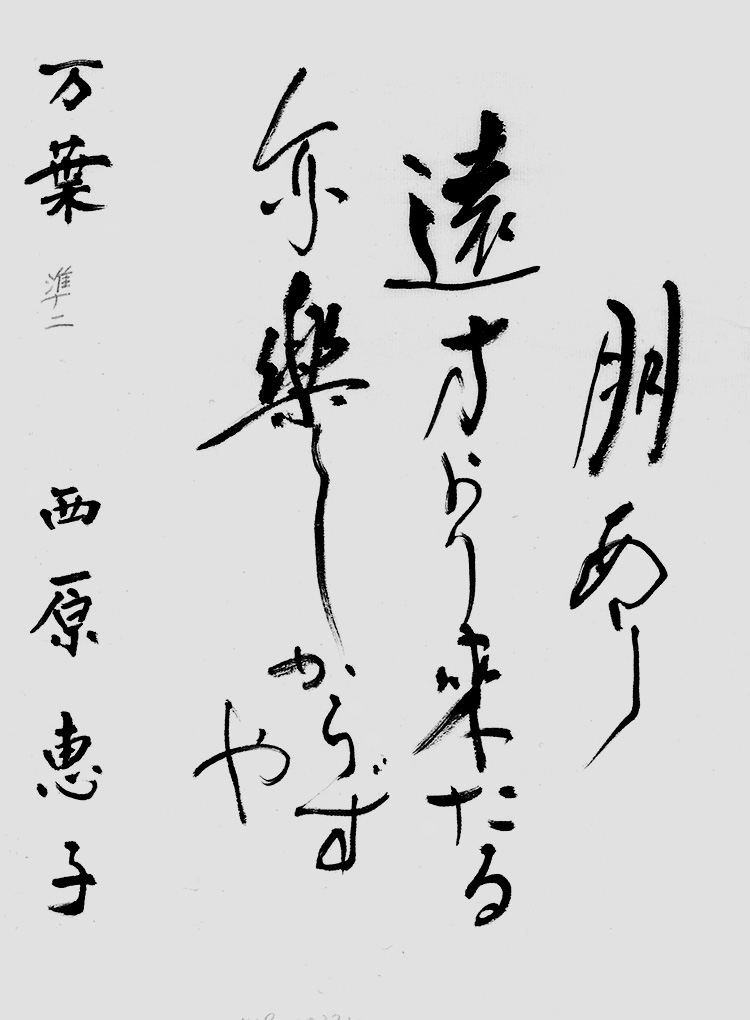 朋あり
遠方より来たる
亦樂しからず
や
万葉 準二 西原恵子